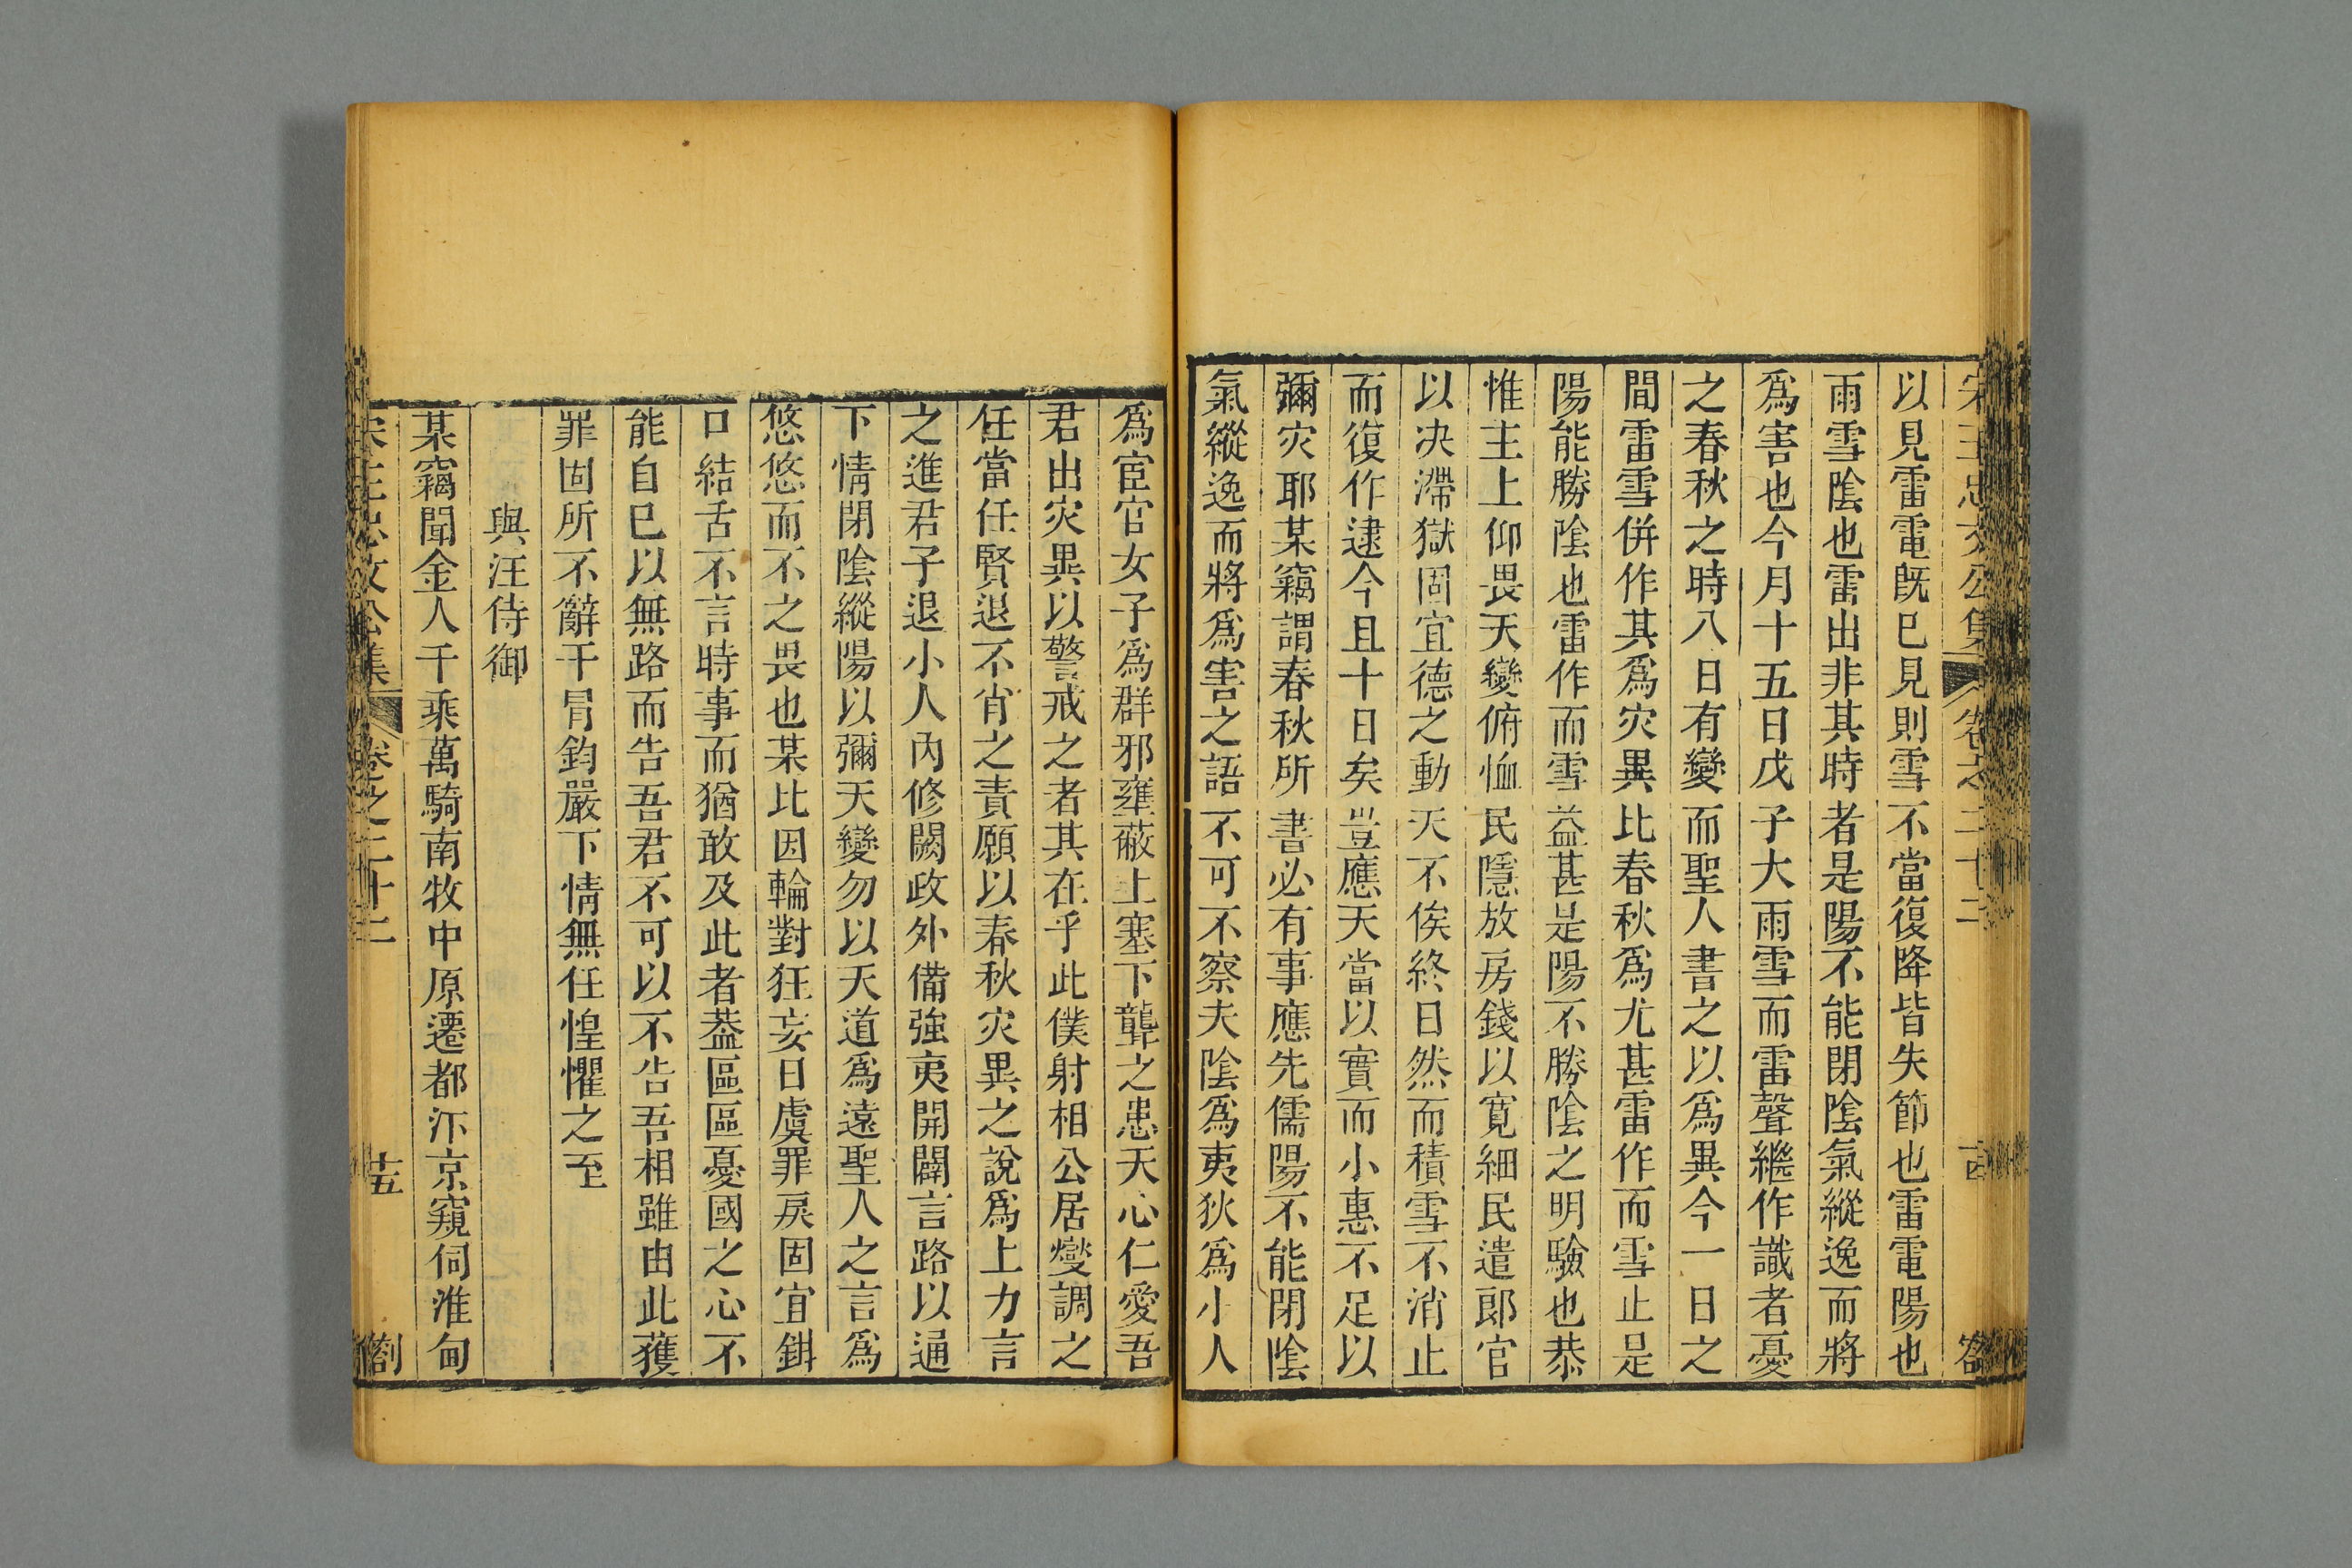 以見雷電既已見則雪不當復降皆失節也雷電陽也
雨雪陰也雷出非其時者是陽不能閉陰氣縱逸而將
爲害也今月十五日戊子大雨雪而雷聲繼作識者憂
之春秋之時八日有變而聖人書之以爲異今一日之
間雷雪併作其爲灾異比春秋爲尤甚雷作而雪止是
陽能勝陰也雷作而雪益甚是陽不勝陰之明驗也恭
惟主上仰畏天變俯恤民隱放房錢以寬細民遣郎官
以决滯獄固宜德之動天不俟終日然而積雪不消止
而復作逮今且十日矣豈應天當以實而小惠不足以
彌灾耶某竊謂春秋所書必有事應先儒陽不能閉陰
氣縱逸而將爲害之語不可不察夫陰爲夷狄爲小人
爲宦官女子爲群邪壅蔽上塞下聾之患天心仁愛吾
君出灾異以警戒之者其在乎此僕射相公居燮調之
任當任賢退不肖之責願以春秋灾異之說爲上力言
之進君子退小人內修闕政外備強夷開闢言路以通
下情閉陰縱陽以彌天變勿以天道爲遠聖人之言爲
悠悠而不之畏也某比因輪對狂妄日虞罪戾固宜鉗
口結舌不言時事而猶敢及此者葢區區憂國之心不
能自已以無路而告吾君不可以不告吾相雖由此獲
罪固所不辭干冐鈞嚴下情無任惶懼之至
與汪侍御
某竊聞金人千乘萬騎南牧中原遷都汴京窺伺淮甸
宋王忠文公集 卷之二十二 十五 劄